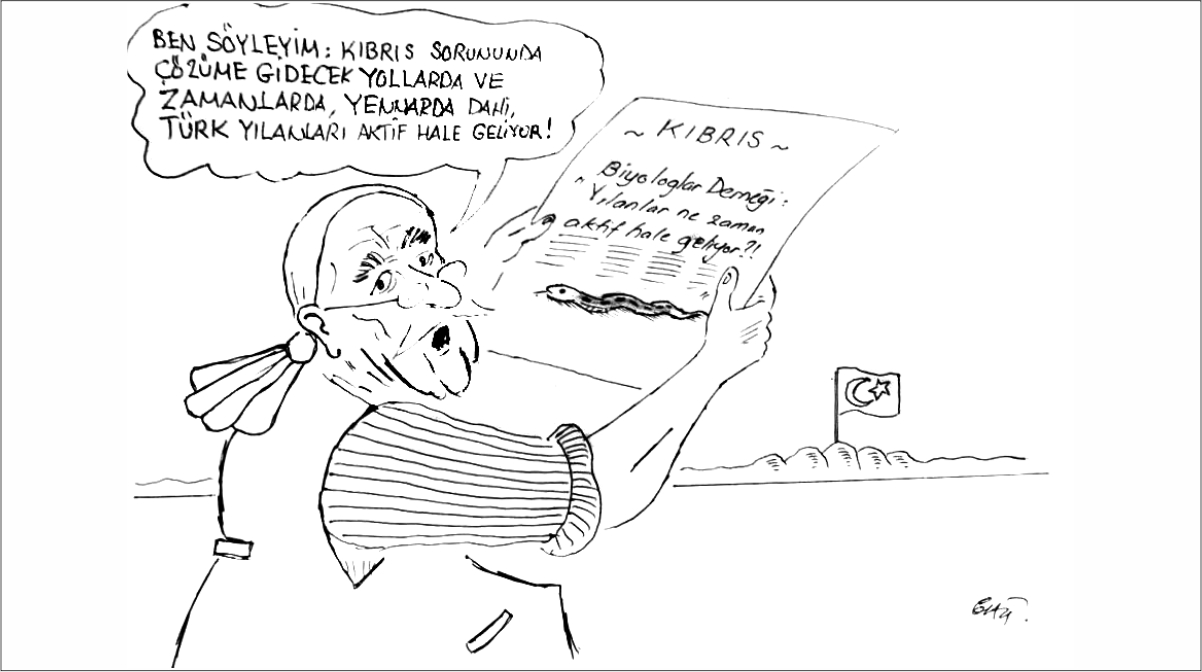 BEN SÖYLEYİM: KIBRIS SORUNUNDA
ÇÖZÜME GİDECEK YOLLARDA VE
ZAMANLARDA, YENNARDA DAHİ,
TÜRK YILANLARI AKTİF HALE GELİYOR!
~ KIBRIS ~
Biyologlar Derneği:
"Yılanlar ne zaman
aktif hale geliyor?!